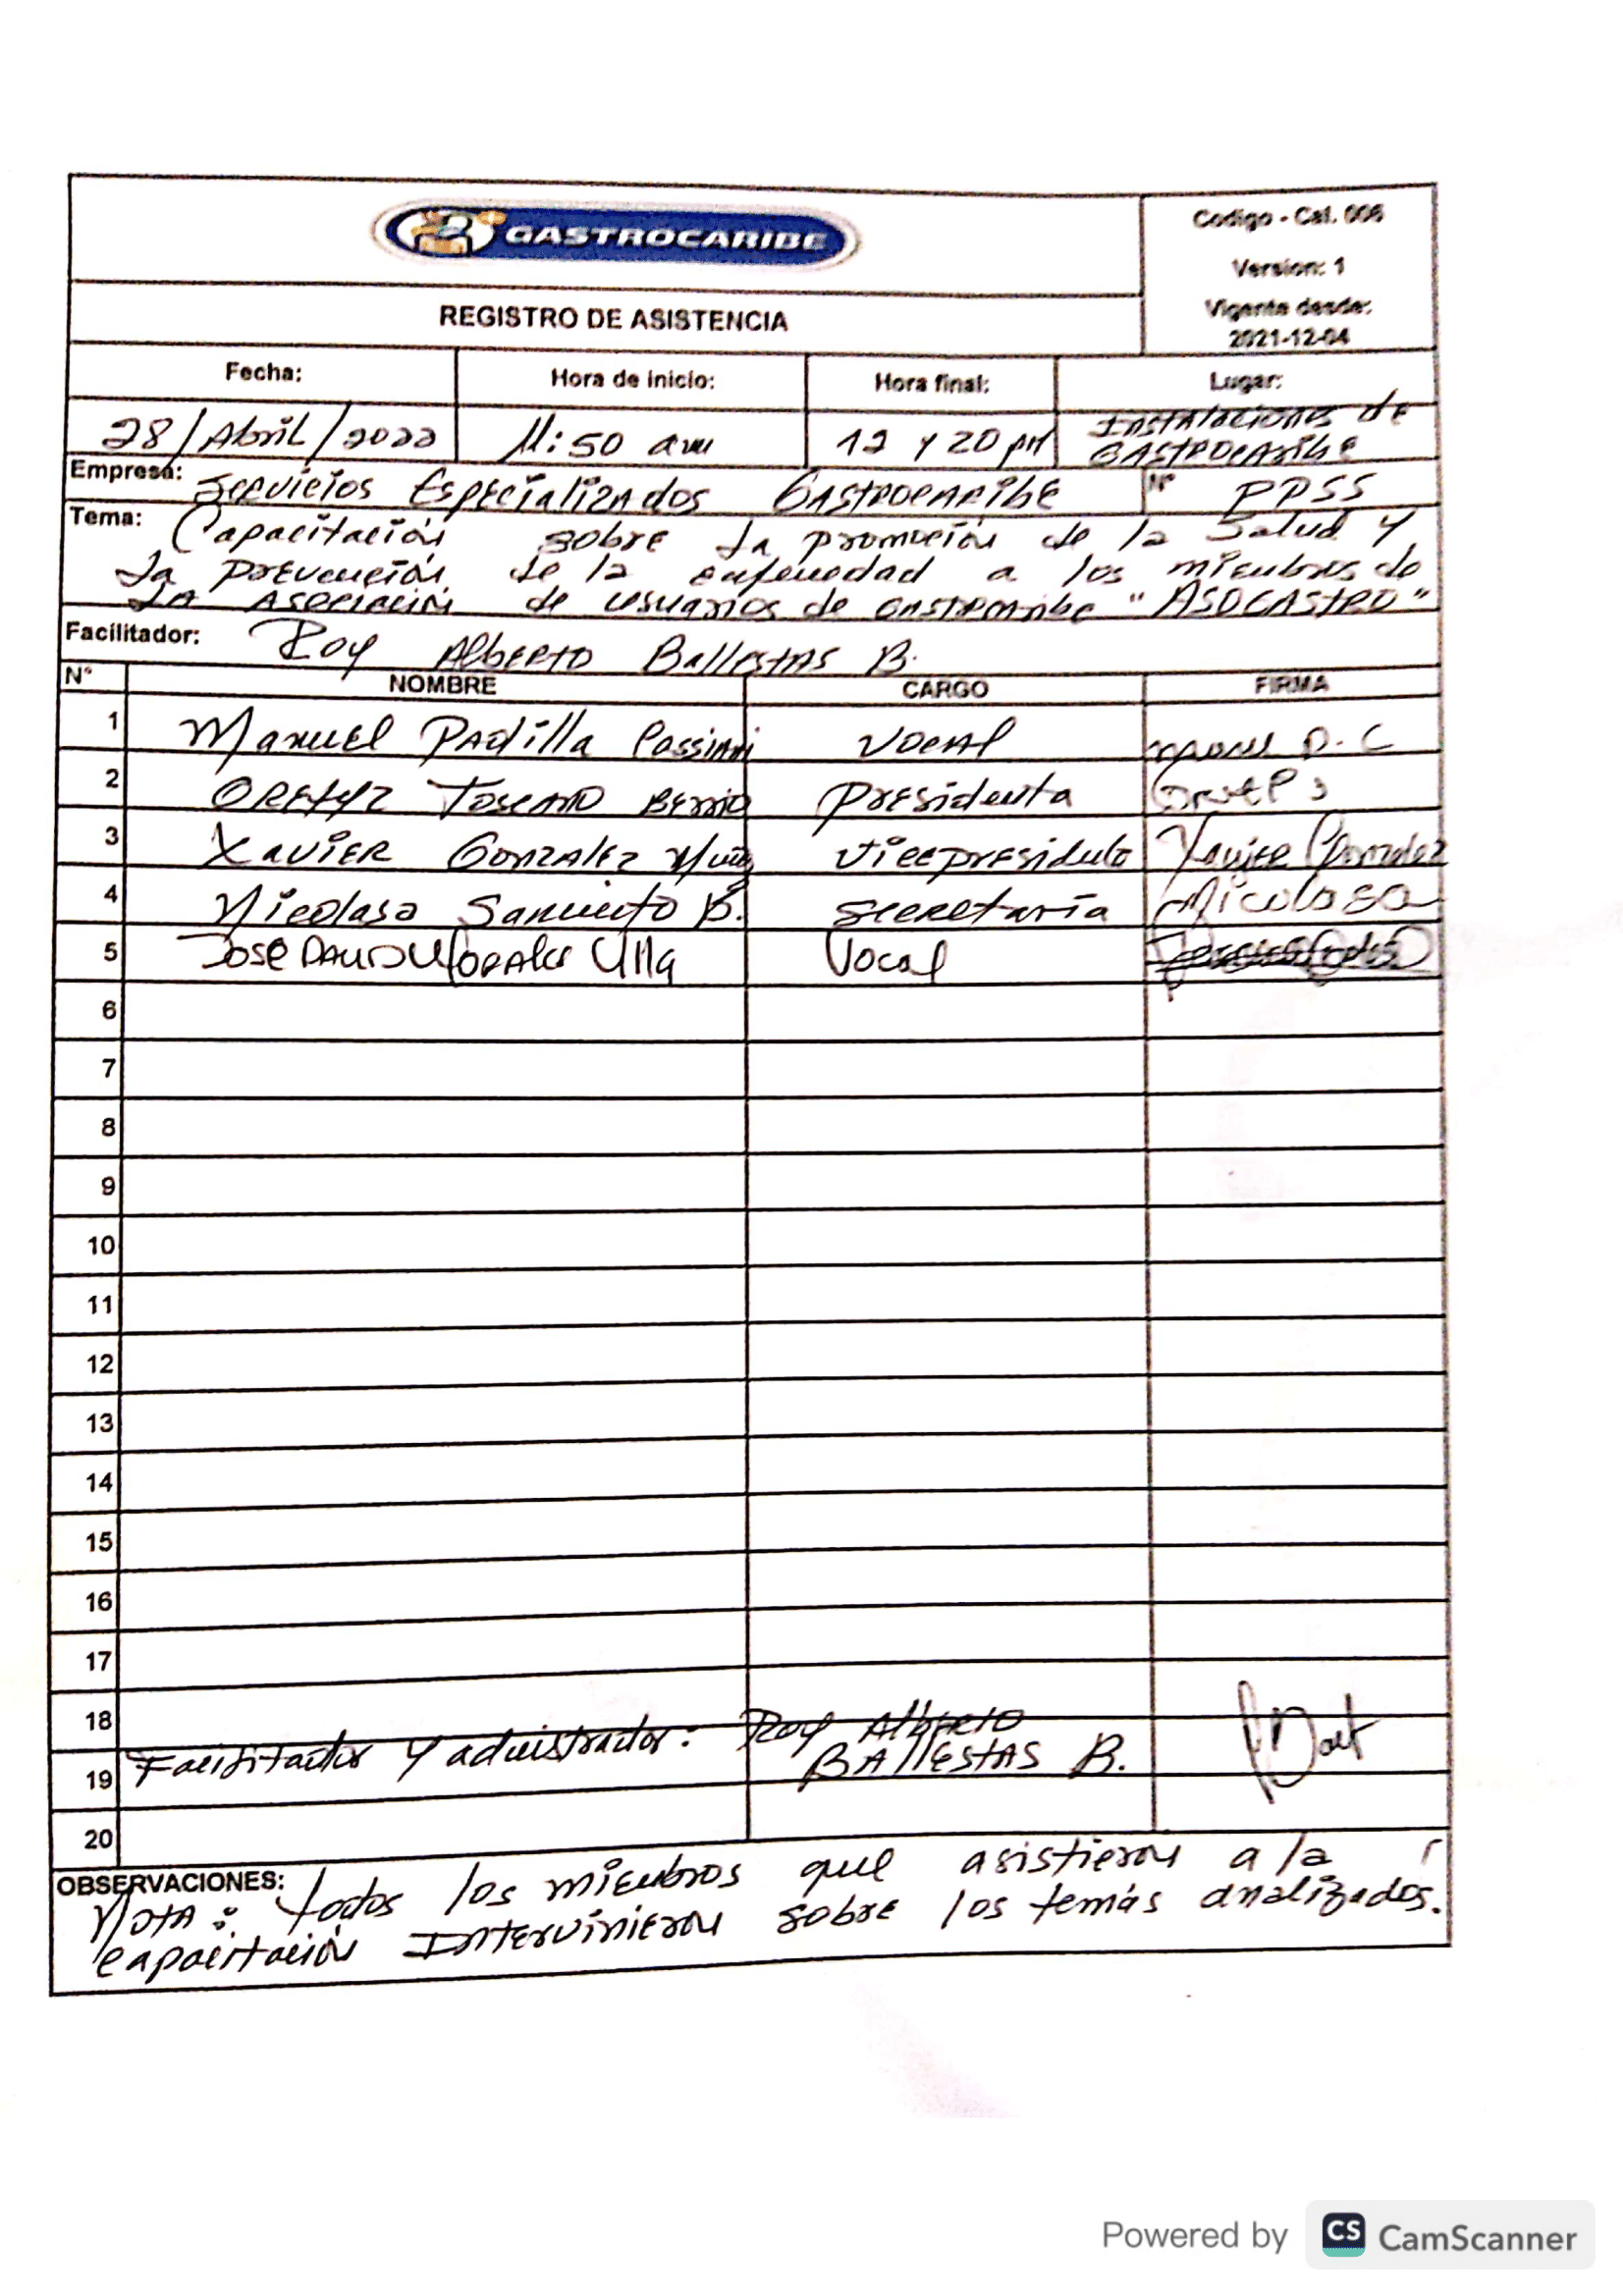 GASTROCARIBE
Codigo - Cal. 006
Version: 1
Vigente desde:
2021-12-04
REGISTRO DE ASISTENCIA
Fecha: Hora de inicio: Hora final: Lugar:
28/Abril/2022 11:50 am 12 y 20 pm Instalaciones de
Gastrocaribe
Empresa: Servicios Especializados Gastrocaribe N° PPSS
Tema: Capacitación sobre la promoción de la Salud y
la prevención de la enfermedad a los miembros de
la Asociación de usuarios de Gastrocaribe "ASOGASTRO"
Facilitador: Roy Alberto Ballestas B.
N° NOMBRE CARGO FIRMA
1 Manuel Padilla Cassiani Vocal Manuel P. C
2 Toscano Berrio Presidenta
3 Xavier Gonzalez Muñoz Vicepresidente Xavier Gonzalez
4 Nicolasa Sarmiento B. Secretaria Nicolasa
5 Jose David Morales Ulla Vocal
6
7
8
9
10
11
12
13
14
15
16
17
18
19 Facilitador y administrador: Roy Alberto
Ballestas B.
20
OBSERVACIONES:
Nota: todos los miembros que asistieron a la
capacitación Intervinieron sobre los temás analizados.
Powered by CS CamScanner